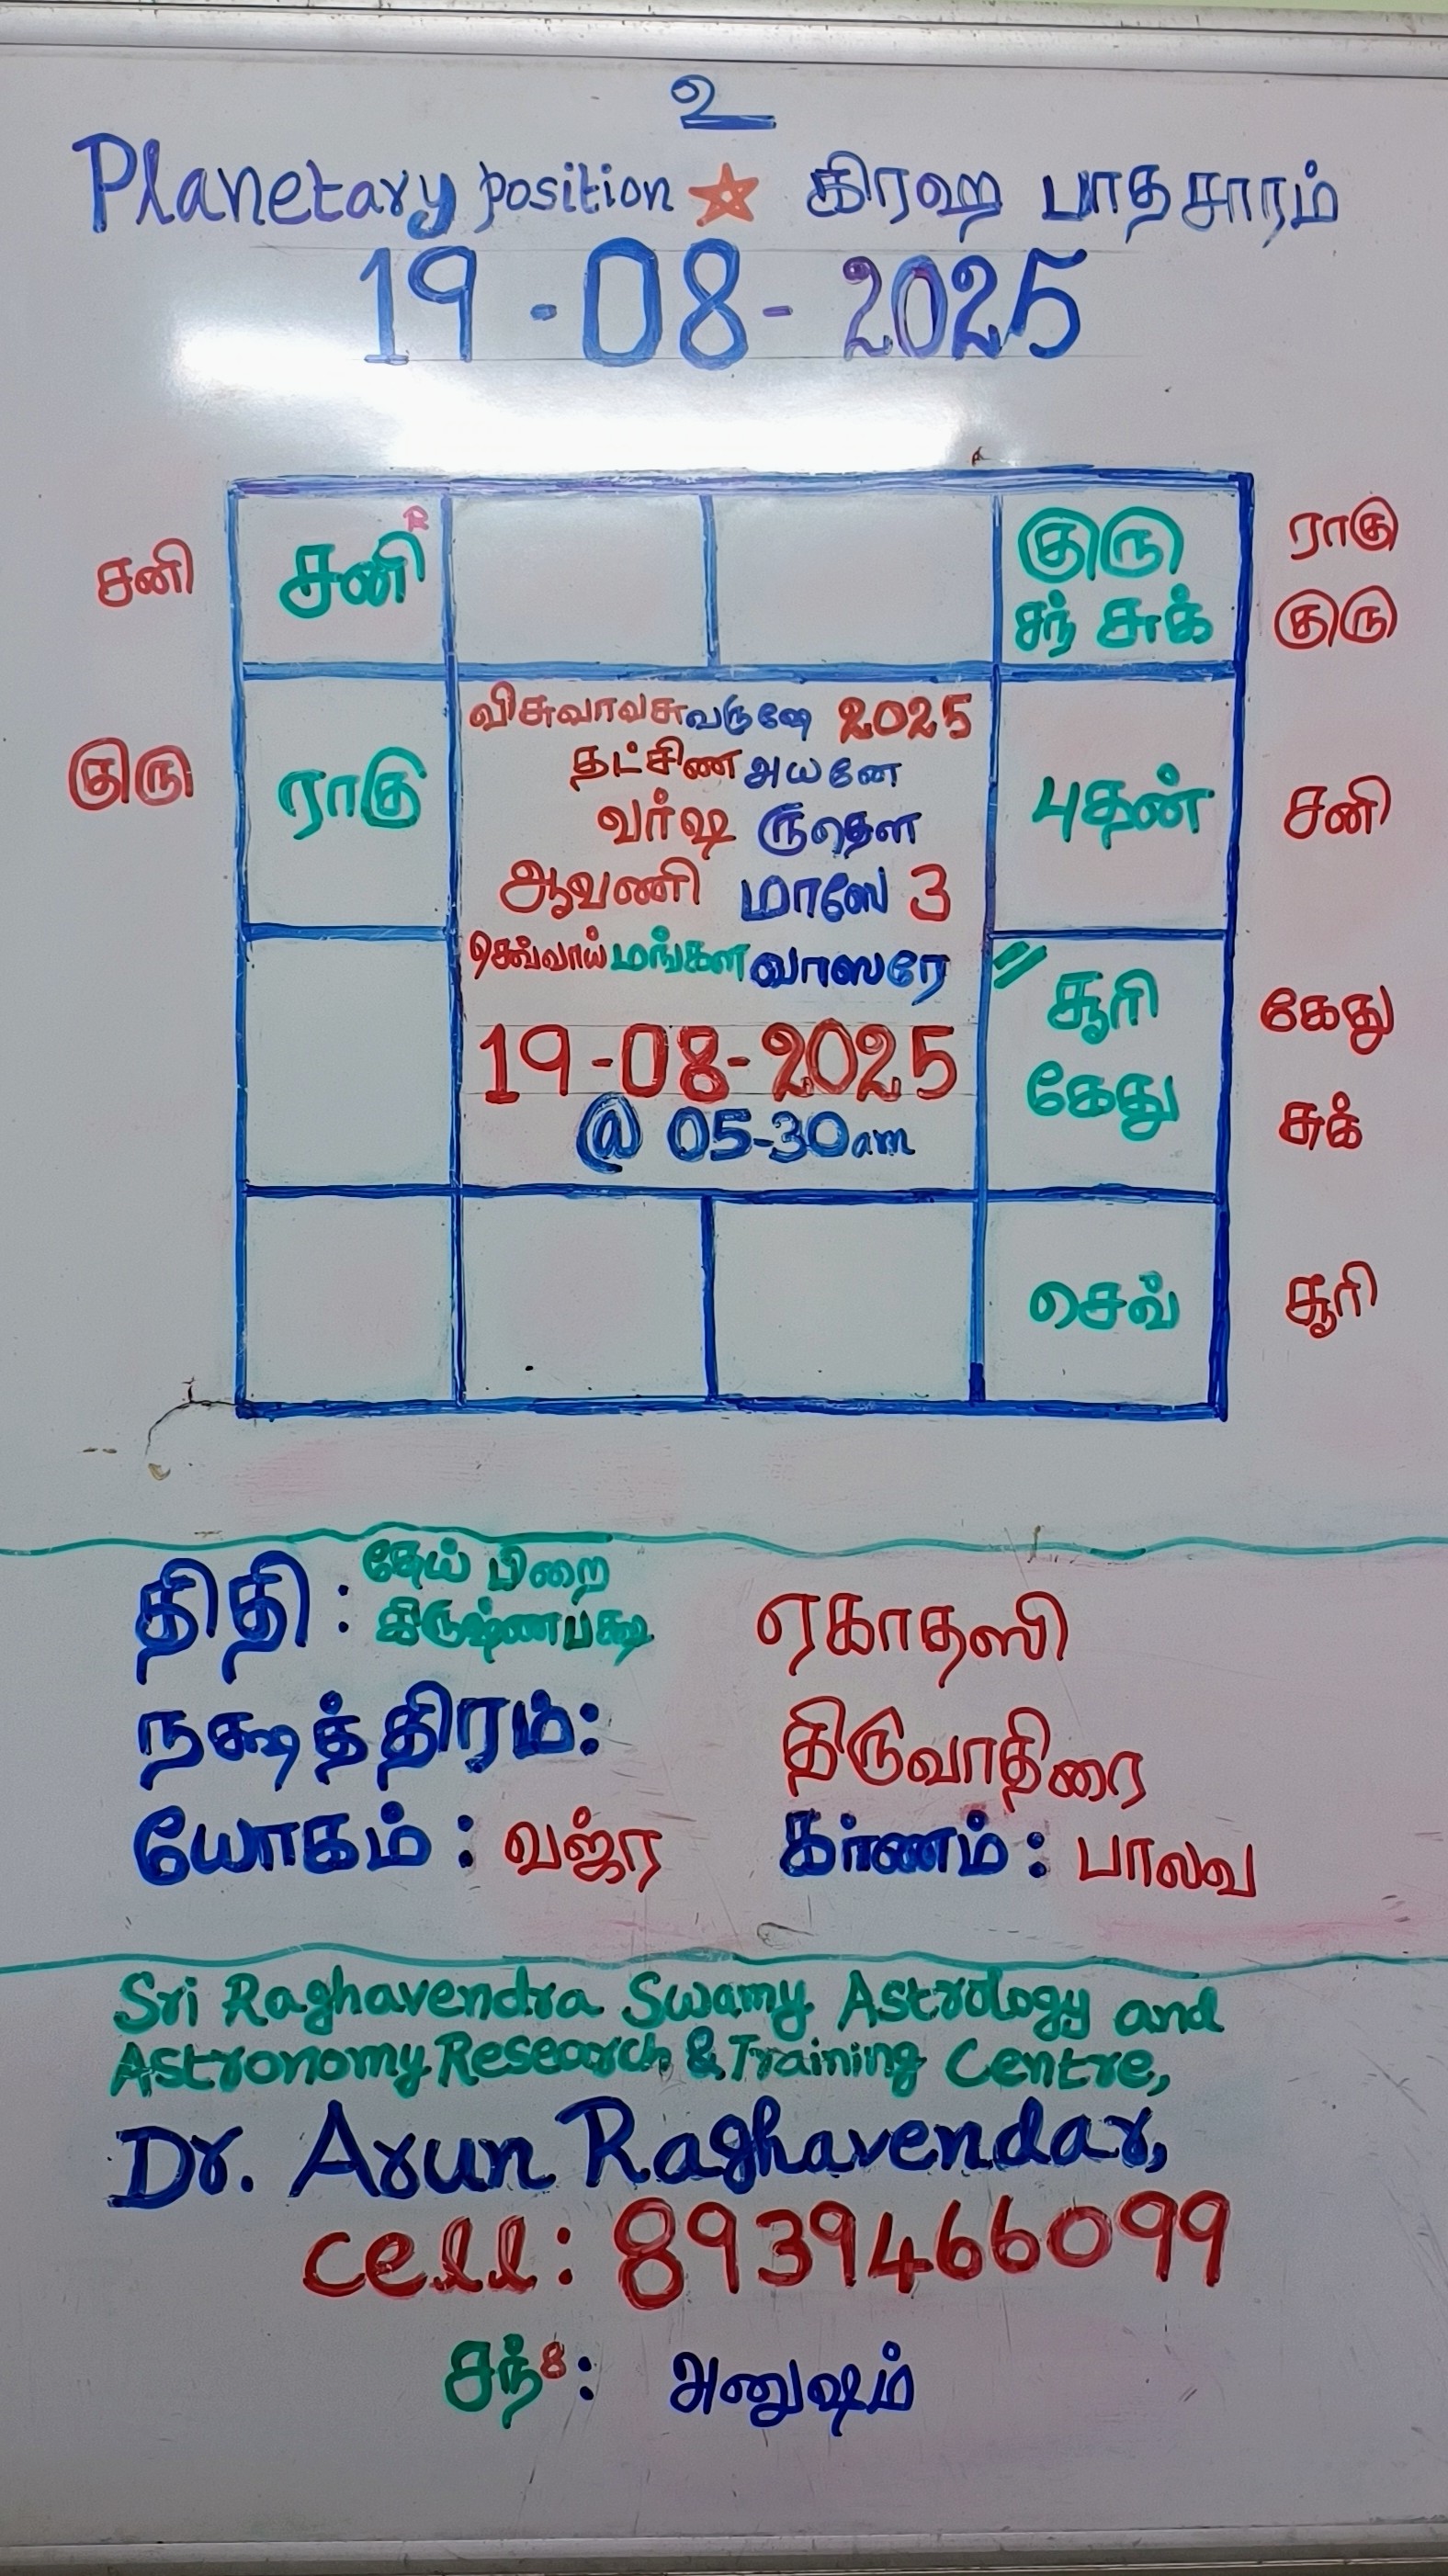 உ
Planetary position ☆ கிரஹ பாதசாரம்
19-08-2025
சனி
சனி R
குரு
சந் சுக்
ராகு
குரு
குரு
ராகு
விசுவாவசுவருஷே 2025
தட்சிண அயனே
வர்ஷ ருதௌ
ஆவணி மாஸே 3
செவ்வாய் மங்கள வாஸரே
19-08-2025
@ 05-30am
புதன்
சனி
சூரி
கேது
கேது
சுக்
செவ்
சூரி
திதி : தேய் பிறை
கிருஷ்ணபக்ஷ
ஏகாதஸி
நக்ஷத்திரம்: திருவாதிரை
யோகம் : வஜ்ர கர்ணம் : பாலவ
Sri Raghavendra Swamy Astrology and
Astronomy Research & Training Centre,
Dr. Arun Raghavendar,
cell: 8939466099
சந்8: அனுஷம்